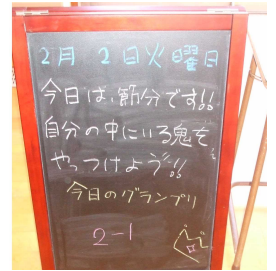 2月 2日火曜日
今日は、節分です!!
自分の中にいる鬼を
やっつけよう!!
今日のグランプリ
2-1